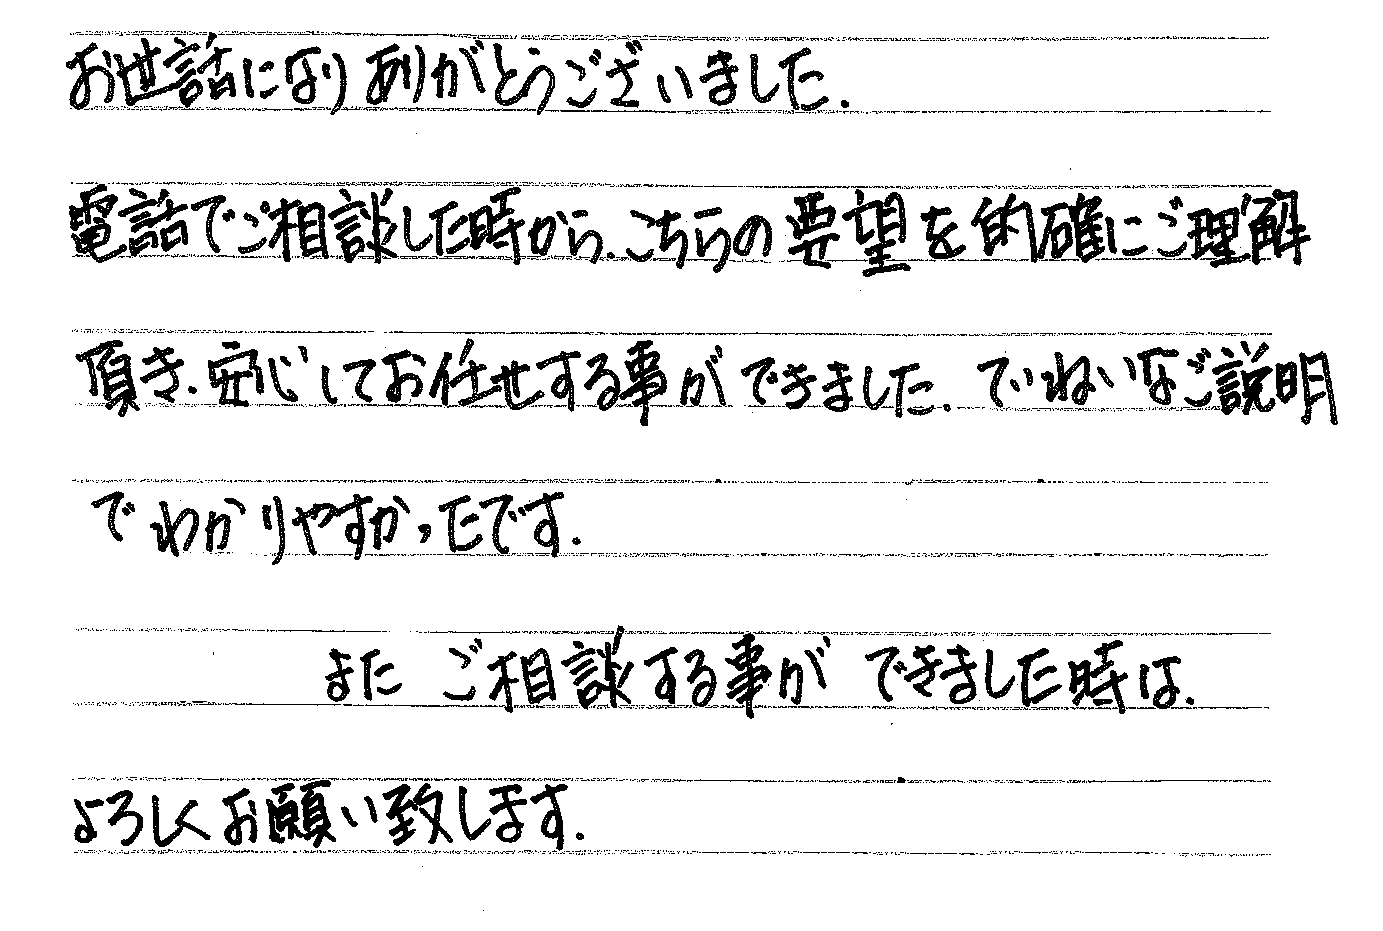 お世話になりありがとうございました.
電話でご相談した時から、こちらの要望を的確にご理解
頂き、安心してお任せする事ができました. ていねいなご説明
でわかりやすかったです.
また ご相談する事が できました時は.
よろしくお願い致します.